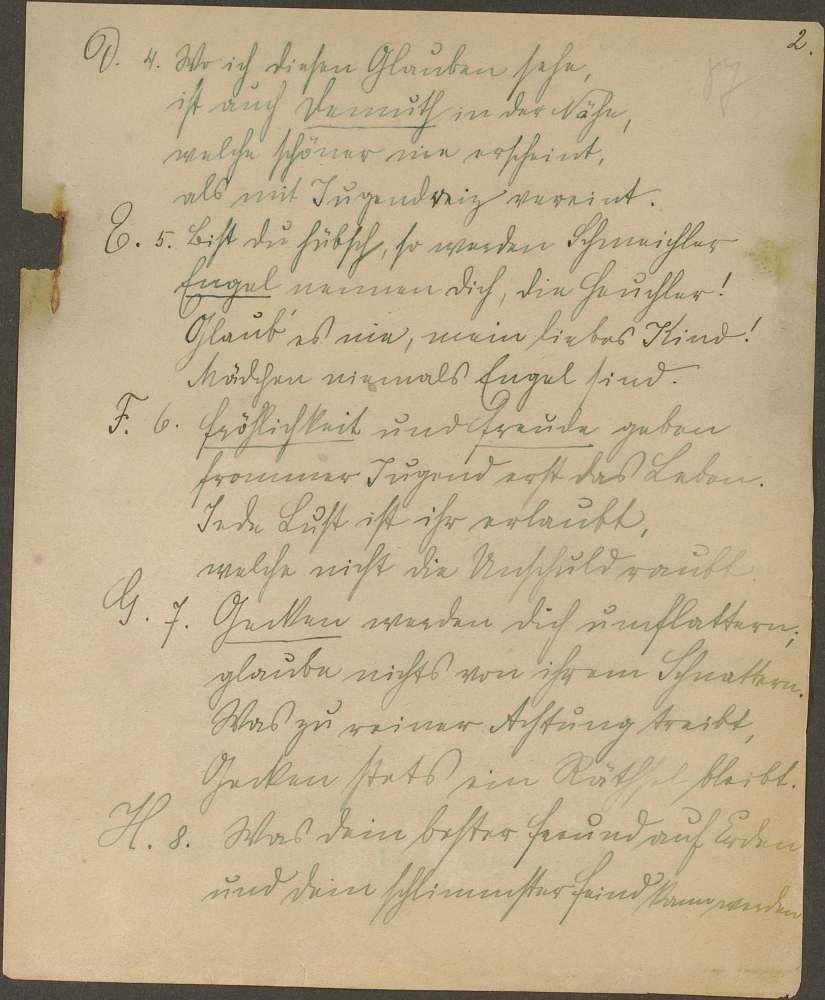 2.
87
D. 4. Wo ich diesen Glauben sehe,
ist auch Demuth in der Nähe,
welche schöner nie erscheint,
als mit Jugendreiz vereint.
E. 5. Bist du hübsch, so werden Schmeichler
Engel nennen dich, die Heuchler!
Glaub' es nie, mein liebes Kind!
Mädchen niemals Engel sind.
F. 6. Fröhlichkeit und Freude geben
frommer Jugend erst das Leben.
Jede Lust ist ihr erlaubt,
welche nicht die Unschuld raubt.
G. 7. Gecken werden dich umflattern;
glaube nichts von ihrem Schnattern.
Was zu reiner Achtung treibt,
Gecken stets ein Räthsel bleibt.
H. 8. Was dein bester Freund auf Erden
und dein schlimmster Feind kann werden